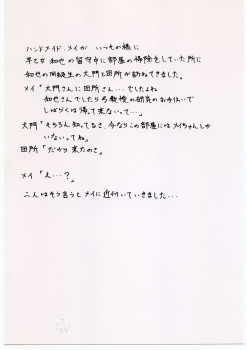 ハンドメイド・メイが いつもの様に
早乙女 和也の留守中に部屋の掃除をしていた所に
和也の同級生の大門と田所が訪ねてきました。
メイ「大門さんに田所さん…でしたよね
和也さんでしたら 教授の研究のお手伝いで
しばらくは帰って来ないって…」
大門「もちろん 知ってるさ、今ならこの部屋にはメイちゃんしか
いないってね」
田所「だから 来たのさ」
メイ「え…?」
二人はそう言うとメイに近付いていきました…